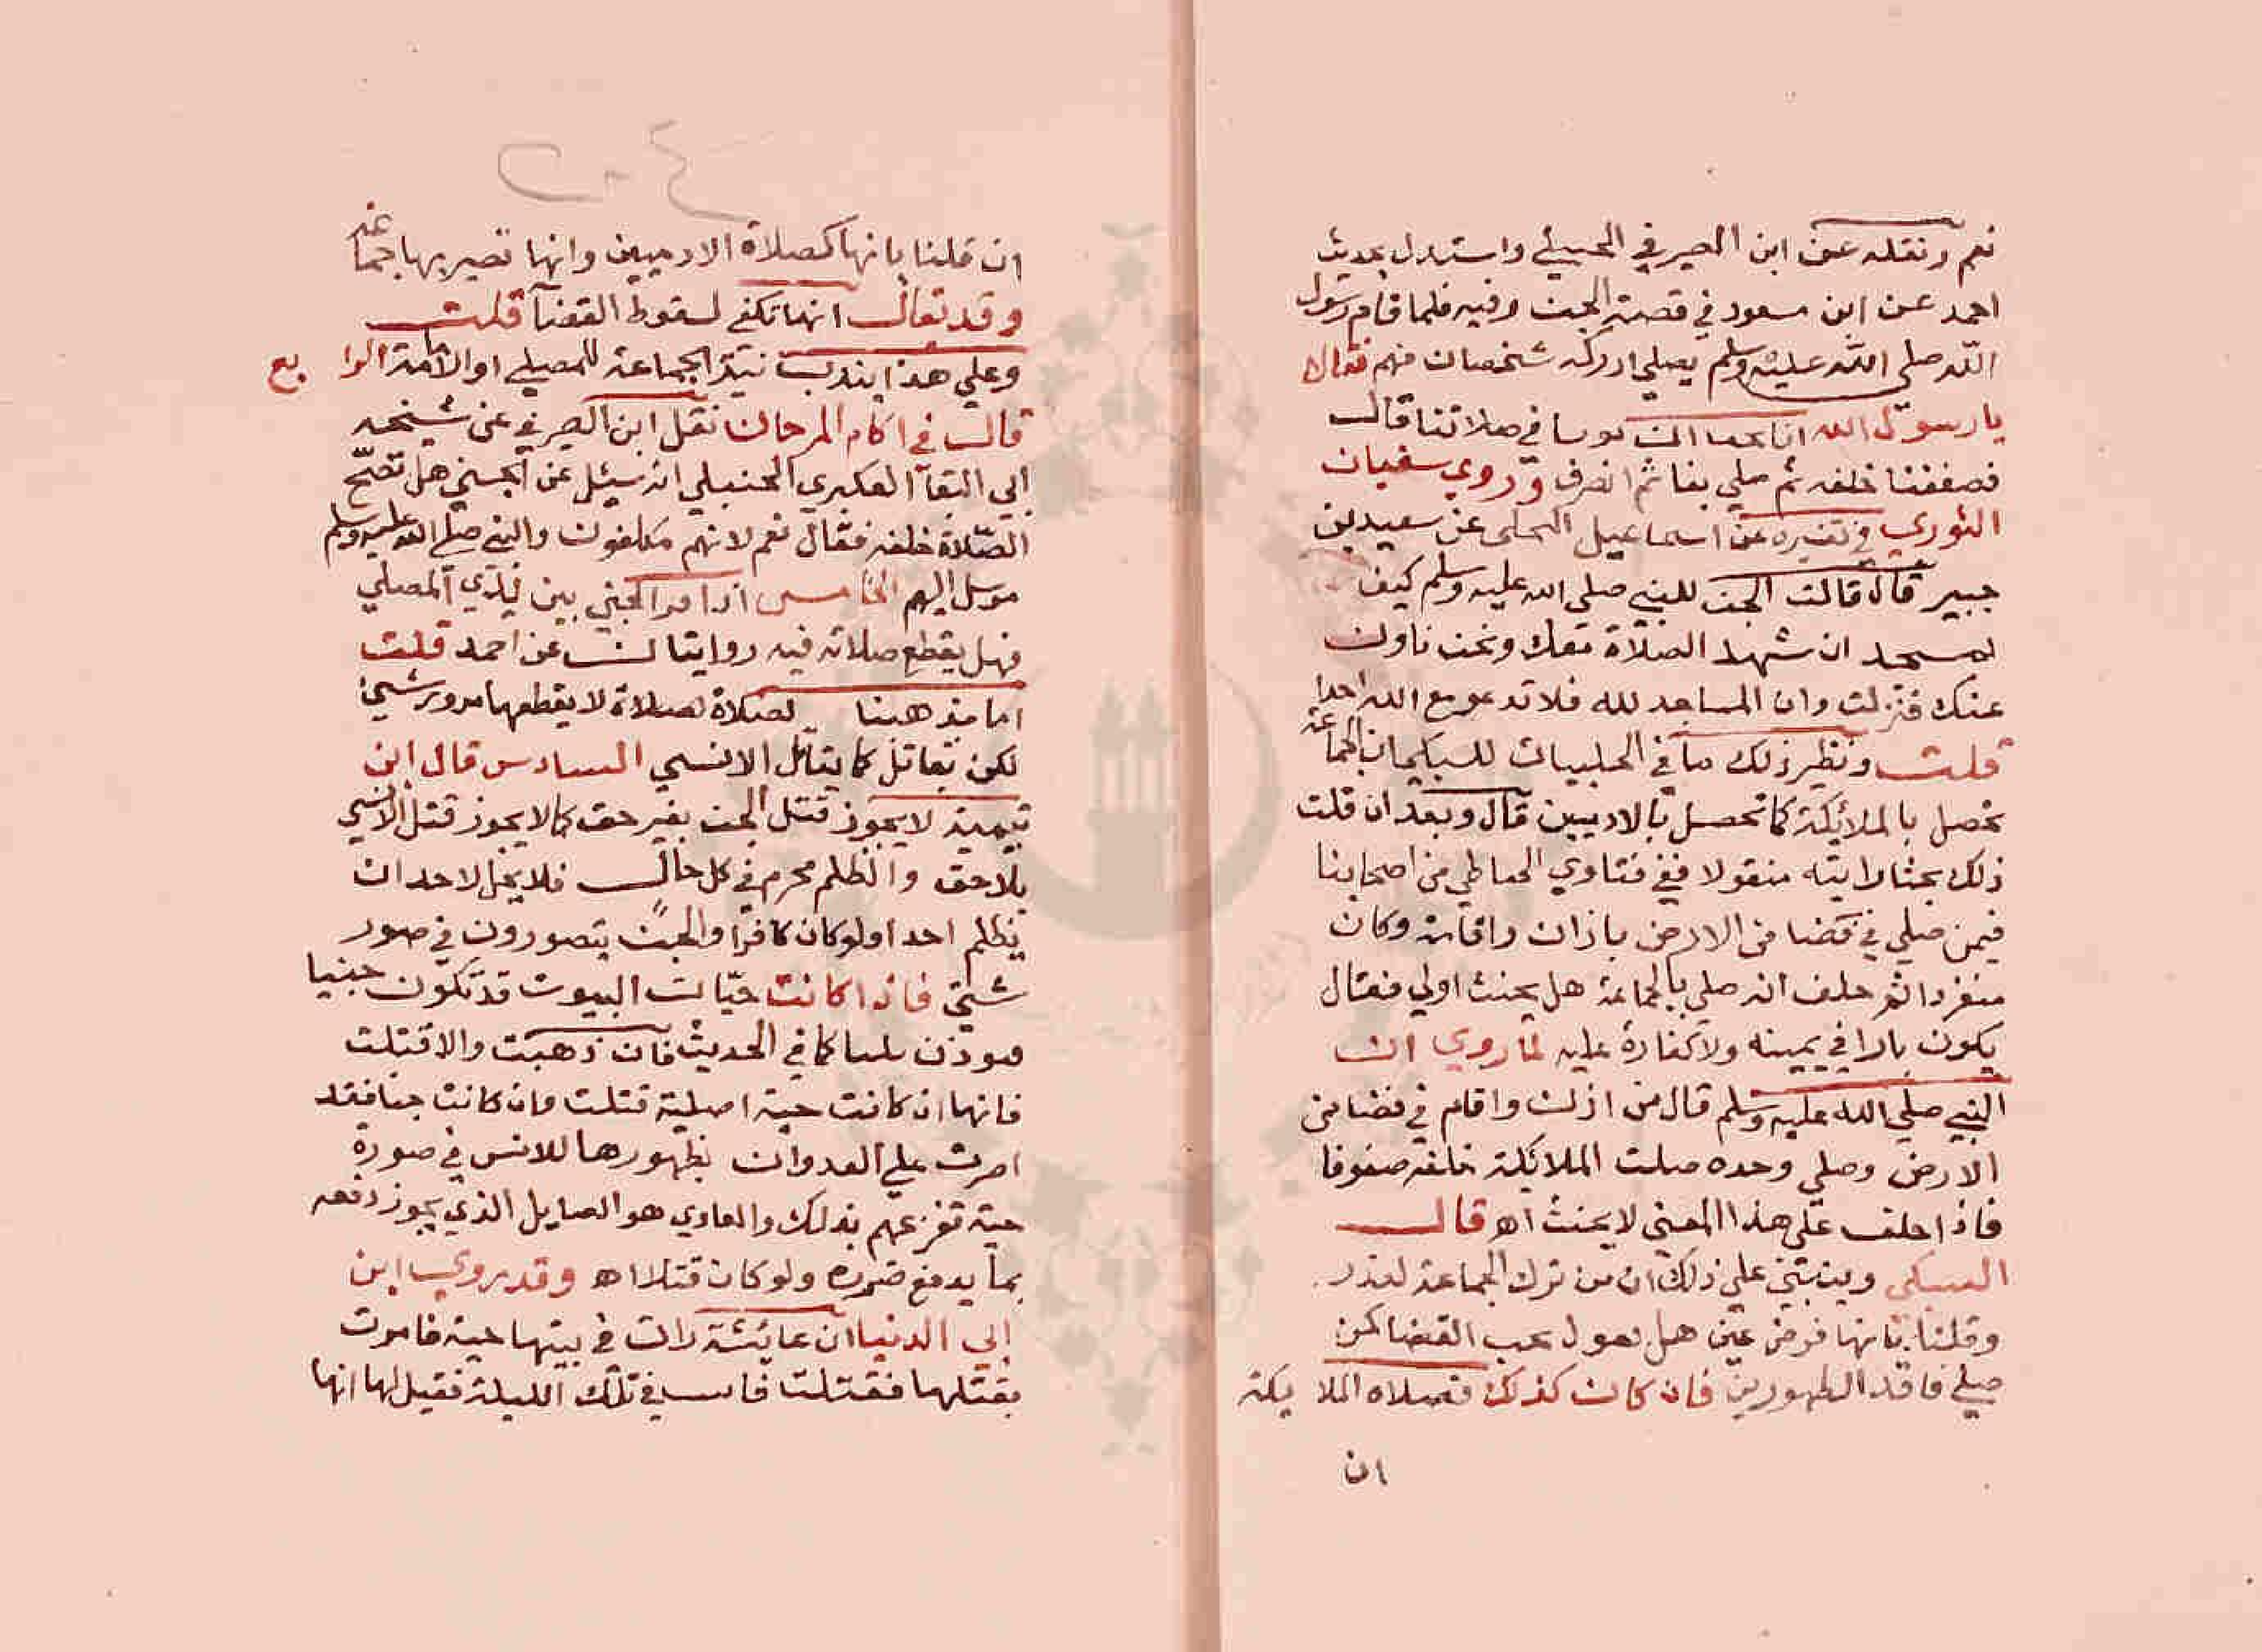 نعم ونقله عن ابن الصيرفي الحنبلي واستدل بحديث
احمد عن ابن مسعود في قصة الجن وفيه فلما قام رسول
الله صلى الله عليه وسلم يصلي ادركه شخصان منهم فقالا
يا رسول الله انا نحب ان تؤمنا في صلاتنا قال
فصففنا خلفه ثم صلي بنا ثم انصرف وروي سفيان
الثوري في تفسيره عن اسماعيل البجلي عن سعيد بن
جبير قال قالت الجن للنبي صلي الله عليه وسلم كيف
لمسجد ان شهد الصلاة معك ونحن ناون
عنك فنزلت وان المساجد لله فلا تدعو مع الله احدا
قلت ونظير ذلك ما في الحلبيات للسبكي ان الجماعة
تحصل بالملائكة كما تحصل بالادميين قال وبعد ان قلت
ذلك بحثا رايته منقولا ففي فتاوي الحناطي من اصحابنا
فيمن صلي في فضا من الارض باذان واقامة وكان
منفردا ثم حلف انه صلي بالجماعة هل يحنث اولي فقال
يكون بارا في يمينه ولا كفارة عليه لما روي ان
النبي صلي الله عليه وسلم قال من اذن واقام في فضا من
الارض وصلي وحده صلت الملائكة خلفه صفوفا
فاذا حلف علي هذا المعني لا يحنث اهـ قال
السبكي وينبني علي ذلك ان من ترك الجماعة لعذر
وقلنا بانها فرض عين هل نقول يجب القضا كمن
صلي فاقد الطهورين فان كان كذلك فصلاة الملائكة
ان
ان قلنا بانها كصلاة الادميين وانها تصير بها جماعة
وقد تقال انها تكفي لسقوط القضآ قلت
وعلي هذا يندب نية الجماعة للمصلي او الامامة الرابع
قال في اكام المرجان نقل ابن الصيرفي عن شيخه
ابي البقآ العكبري الحنبلي انه سئل عن الجني هل تصح
الصلاة خلفه فقال نعم لانهم مكلفون والنبي صلي الله عليه وسلم
مرسل اليهم الخامس اذا مر الجني بين يدي المصلي
فهل يقطع صلاته فيه روايتان عن احمد قلت
اما مذهبنا لصلاة لصلاة لا يقطعها مرور شيئ
لكن يقاتل كما يقاتل الانسي السادس قال ابن
تيمية لا يجوز قتل الجن بغير حق كما لا يجوز قتل الانسي
بلا حق والظلم محرم في كل حال فلا يحل لاحد ان
يظلم احدا ولو كان كافرا والجن يتصورون في صور
شتي فاذا كانت حيات البيوت قد تكون جنيا
فيوذن ثلثا كما في الحديث فان ذهبت والا قتلت
فانها ان كانت حية اصلية قتلت وان كانت جنا فقد
اصرت علي العدوان بظهورها للانس في صورة
حية تفزعهم بذلك والعادي هو الصايل الذي يجوز دفعه
بما يدفع ضرره ولو كان قتلا اهـ وقد روي ابن
ابي الدنيا ان عائشة رات في بيتها حية فامرت
بقتلها فقتلت فاتيت في تلك الليلة فقيل لها انها